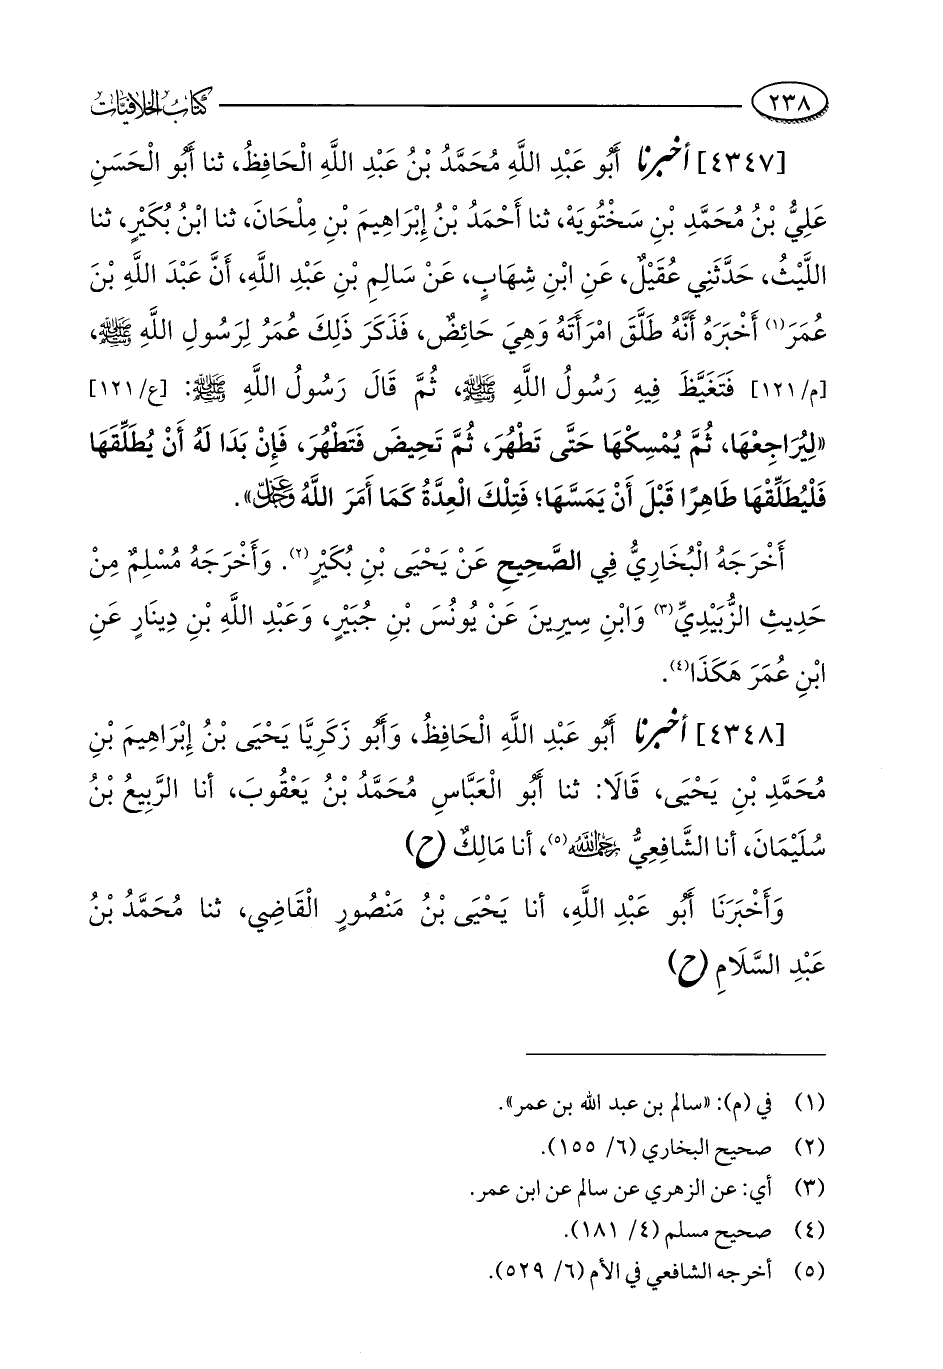 ٢٣٨ كتاب الخلافيات
[٤٣٤٧] أخبرنا أَبُو عَبْدِ اللَّهِ مُحَمَّدُ بْنُ عَبْدِ اللَّهِ الْحَافِظُ، ثنا أَبُو الْحَسَنِ
عَلِيُّ بْنُ مُحَمَّدِ بْنِ سَخْتُويَهْ، ثنا أَحْمَدُ بْنُ إِبْرَاهِيمَ بْنِ مِلْحَانَ، ثنا ابْنُ بُكَيْرٍ، ثنا
اللَّيْثُ، حَدَّثَنِي عُقَيْلٌ، عَنِ ابْنِ شِهَابٍ، عَنْ سَالِمِ بْنِ عَبْدِ اللَّهِ، أَنَّ عَبْدَ اللَّهِ بْنَ
عُمَرَ(١) أَخْبَرَهُ أَنَّهُ طَلَّقَ امْرَأَتَهُ وَهِيَ حَائِضٌ، فَذَكَرَ ذَلِكَ عُمَرُ لِرَسُولِ اللَّهِ ﷺ،
[م/١٢١] فَتَغَيَّظَ فِيهِ رَسُولُ اللَّهِ ﷺ، ثُمَّ قَالَ رَسُولُ اللَّهِ ﷺ: [ع/١٢١]
«لِيُرَاجِعْهَا، ثُمَّ يُمْسِكْهَا حَتَّى تَطْهُرَ، ثُمَّ تَحِيضَ فَتَطْهُرَ، فَإِنْ بَدَا لَهُ أَنْ يُطَلِّقَهَا
فَلْيُطَلِّقْهَا طَاهِرًا قَبْلَ أَنْ يَمَسَّهَا؛ فَتِلْكَ الْعِدَّةُ كَمَا أَمَرَ اللَّهُ عَزَّ وَجَلَّ».
أَخْرَجَهُ الْبُخَارِيُّ فِي الصَّحِيحِ عَنْ يَحْيَى بْنِ بُكَيْرٍ(٢). وَأَخْرَجَهُ مُسْلِمٌ مِنْ
حَدِيثِ الزُّبَيْدِيِّ(٣) وَابْنِ سِيرِينَ عَنْ يُونُسَ بْنِ جُبَيْرٍ، وَعَبْدِ اللَّهِ بْنِ دِينَارٍ عَنِ
ابْنِ عُمَرَ هَكَذَا(٤).
[٤٣٤٨] أخبرنا أَبُو عَبْدِ اللَّهِ الْحَافِظُ، وَأَبُو زَكَرِيَّا يَحْيَى بْنُ إِبْرَاهِيمَ بْنِ
مُحَمَّدِ بْنِ يَحْيَى، قَالَا: ثنا أَبُو الْعَبَّاسِ مُحَمَّدُ بْنُ يَعْقُوبَ، أنا الرَّبِيعُ بْنُ
سُلَيْمَانَ، أنا الشَّافِعِيُّ رَحِمَهُ اللَّهُ(٥)، أنا مَالِكٌ (ح)
وَأَخْبَرَنَا أَبُو عَبْدِ اللَّهِ، أنا يَحْيَى بْنُ مَنْصُورٍ الْقَاضِي، ثنا مُحَمَّدُ بْنُ
عَبْدِ السَّلَامِ (ح)
(١) في (م): «سالم بن عبد الله بن عمر».
(٢) صحيح البخاري (٦/ ١٥٥).
(٣) أي: عن الزهري عن سالم عن ابن عمر.
(٤) صحيح مسلم (٤/ ١٨١).
(٥) أخرجه الشافعي في الأم (٦/ ٥٢٩).